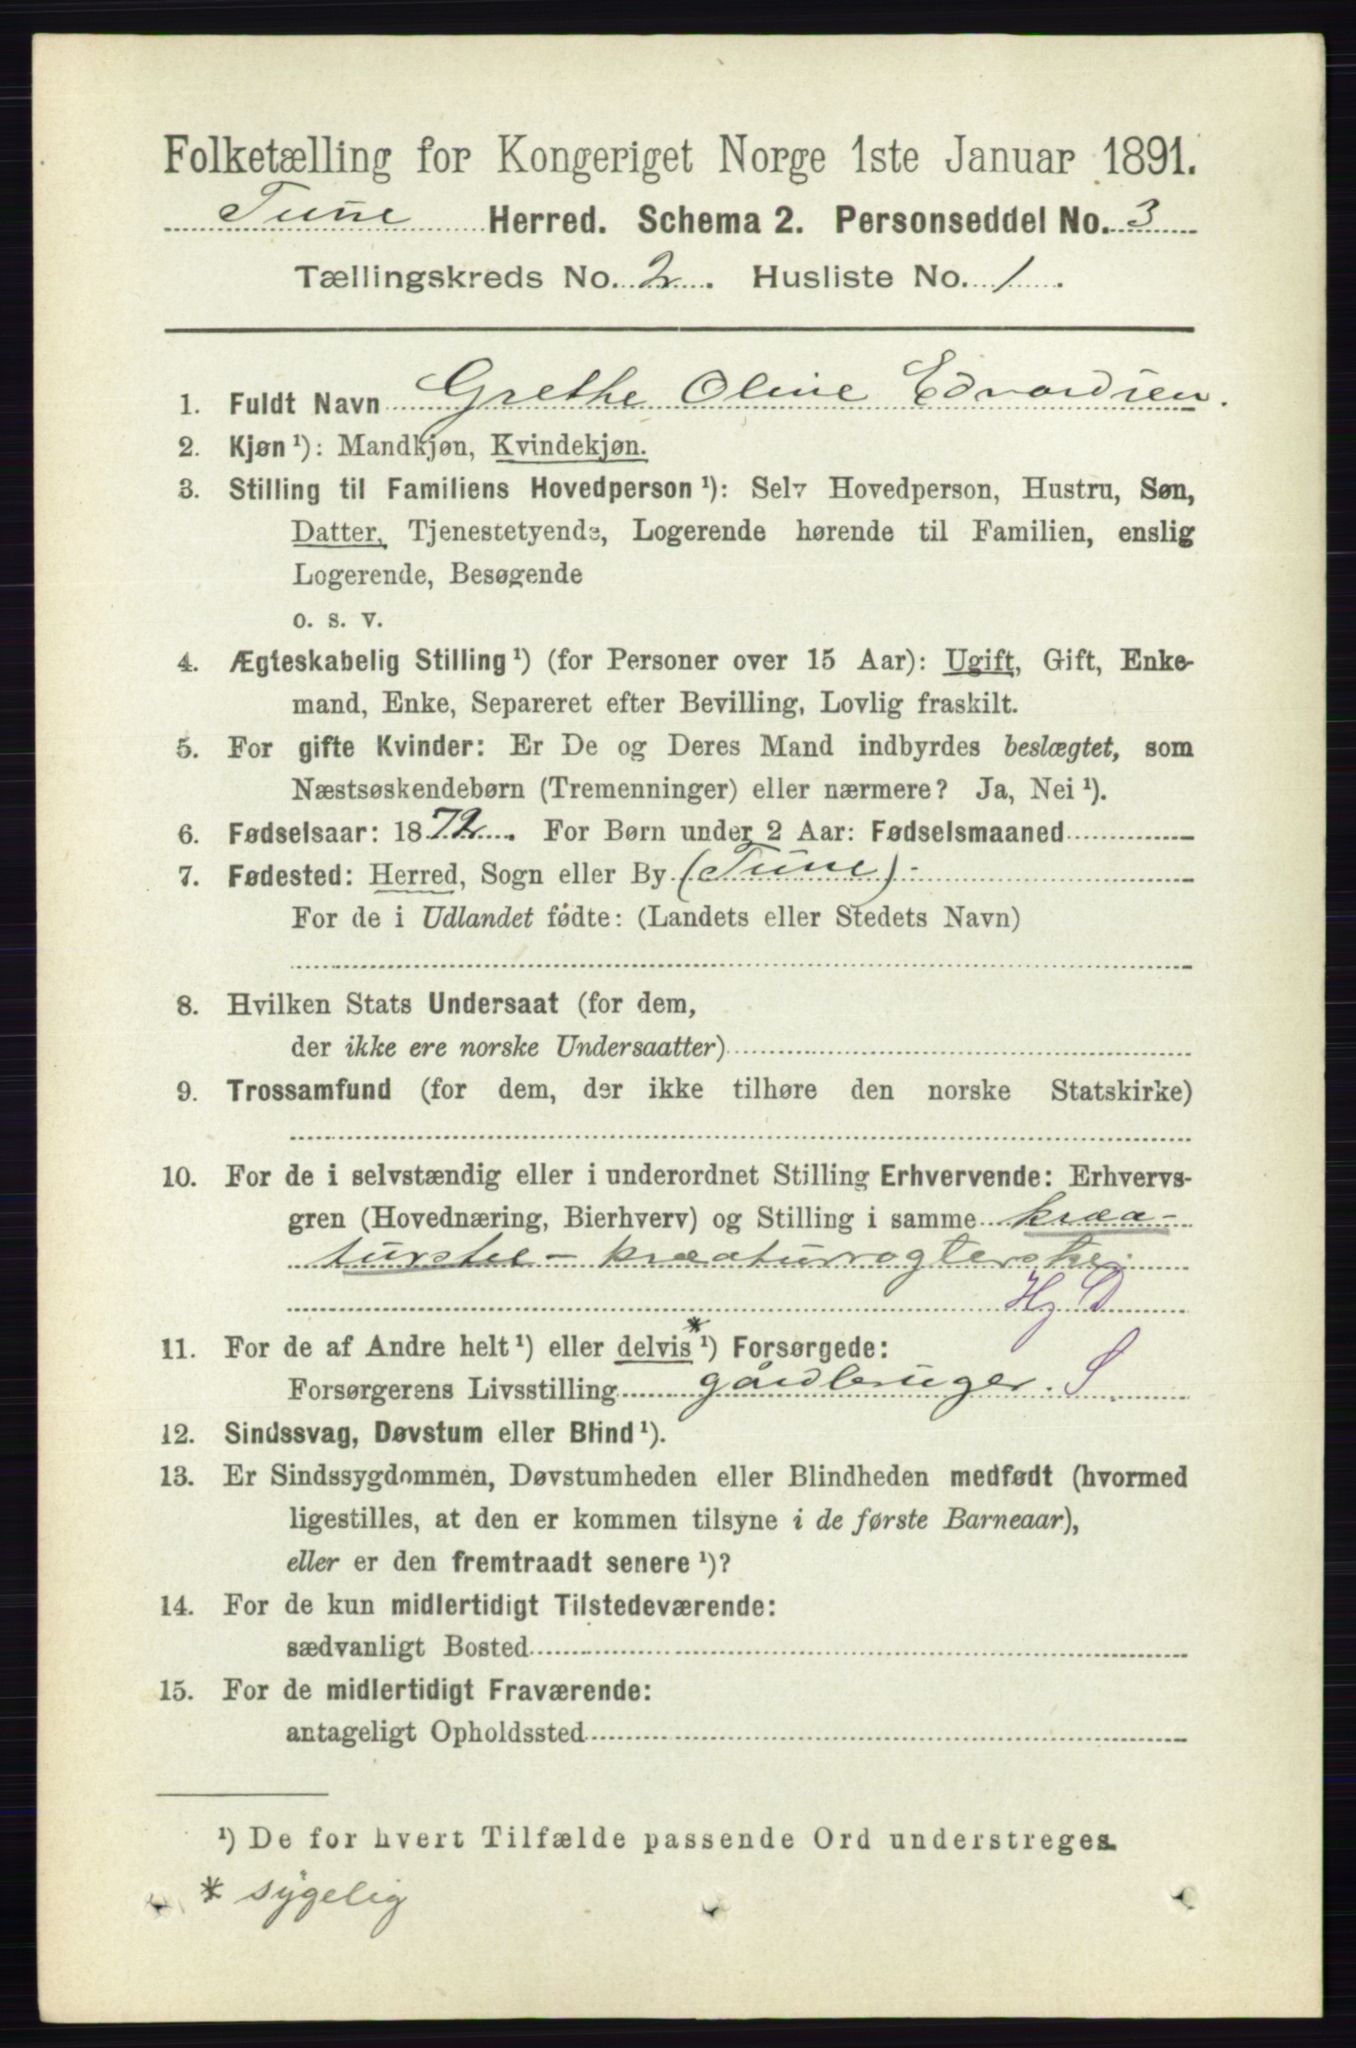 Folketælling for Kongeriget Norge 1ste Januar 1891.
Tune Herred. Schema 2. Personseddel No. 3
Tællingskreds No. 2. Husliste No. 1.
1. Fuldt Navn Grethe Oline Edvardsen.
2. Kjøn ¹): Mandkjøn, Kvindekjøn.
3. Stilling til Familiens Hovedperson ¹): Selv Hovedperson, Hustru, Søn,
Datter, Tjenestetyende, Logerende hørende til Familien, enslig
Logerende, Besøgende
o. s. v.
4. Ægteskabelig Stilling ¹) (for Personer over 15 Aar): Ugift, Gift, Enke-
mand, Enke, Separeret efter Bevilling, Lovlig fraskilt.
5. For gifte Kvinder: Er De og Deres Mand indbyrdes beslægtet, som
Næstsøskendebørn (Tremenninger) eller nærmere? Ja, Nei ¹).
6. Fødselsaar: 1872. For Børn under 2 Aar: Fødselsmaaned
7. Fødested: Herred, Sogn eller By (Tune).
For de i Udlandet fødte: (Landets eller Stedets Navn)
8. Hvilken Stats Undersaat (for dem,
der ikke ere norske Undersaatter)
9. Trossamfund (for dem, der ikke tilhøre den norske Statskirke)
10. For de i selvstændig eller i underordnet Stilling Erhvervende: Erhvervs-
gren (Hovednæring, Bierhverv) og Stilling i samme kraa-
turstel - kreaturrøgterske.
Hj D
11. For de af Andre helt ¹) eller delvis * ¹) Forsørgede:
Forsørgerens Livsstilling gårdbruger. S
12. Sindssvag, Døvstum eller Blind ¹).
13. Er Sindssygdommen, Døvstumheden eller Blindheden medfødt (hvormed
ligestilles, at den er kommen tilsyne i de første Barneaar),
eller er den fremtraadt senere ¹)?
14. For de kun midlertidigt Tilstedeværende:
sædvanligt Bosted
15. For de midlertidigt Fraværende:
antageligt Opholdssted
¹) De for hvert Tilfælde passende Ord understreges.
* sygelig